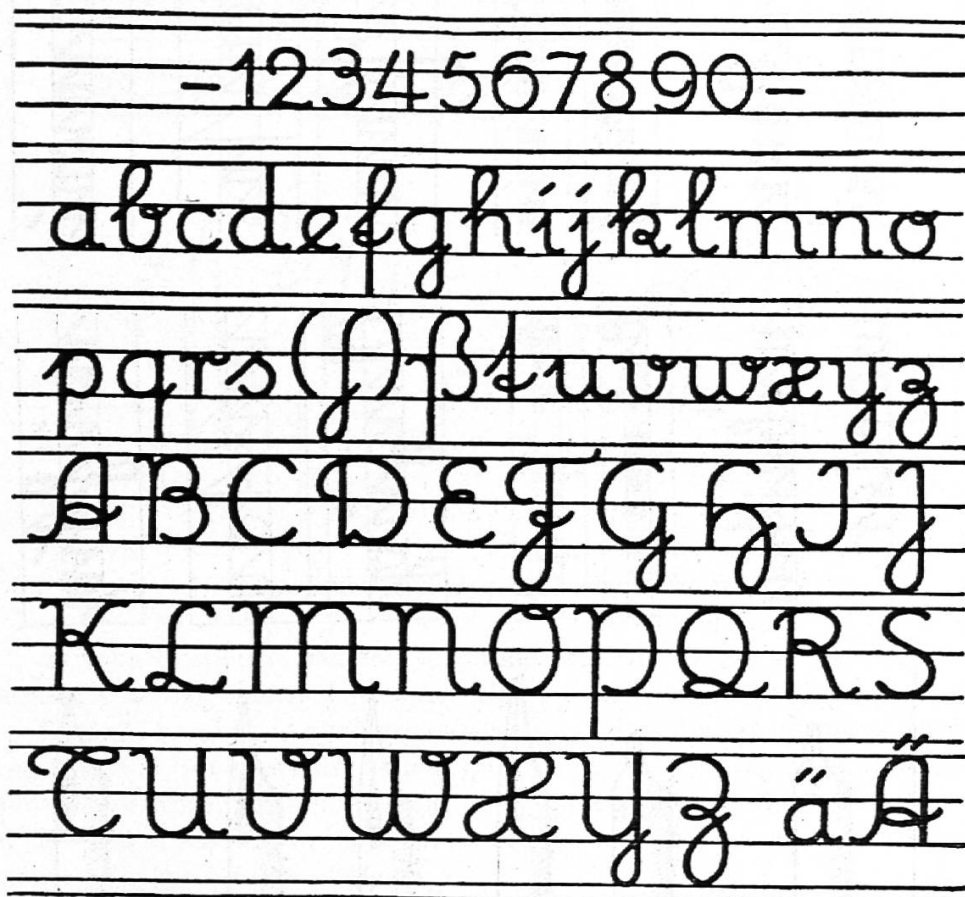 -1234567890-
abcdefghijklmno
pqrs(ſ)ßtuvwxyz
ABCDEFGHIJ
KLMNOPQRS
TUVWXYZ äÄ